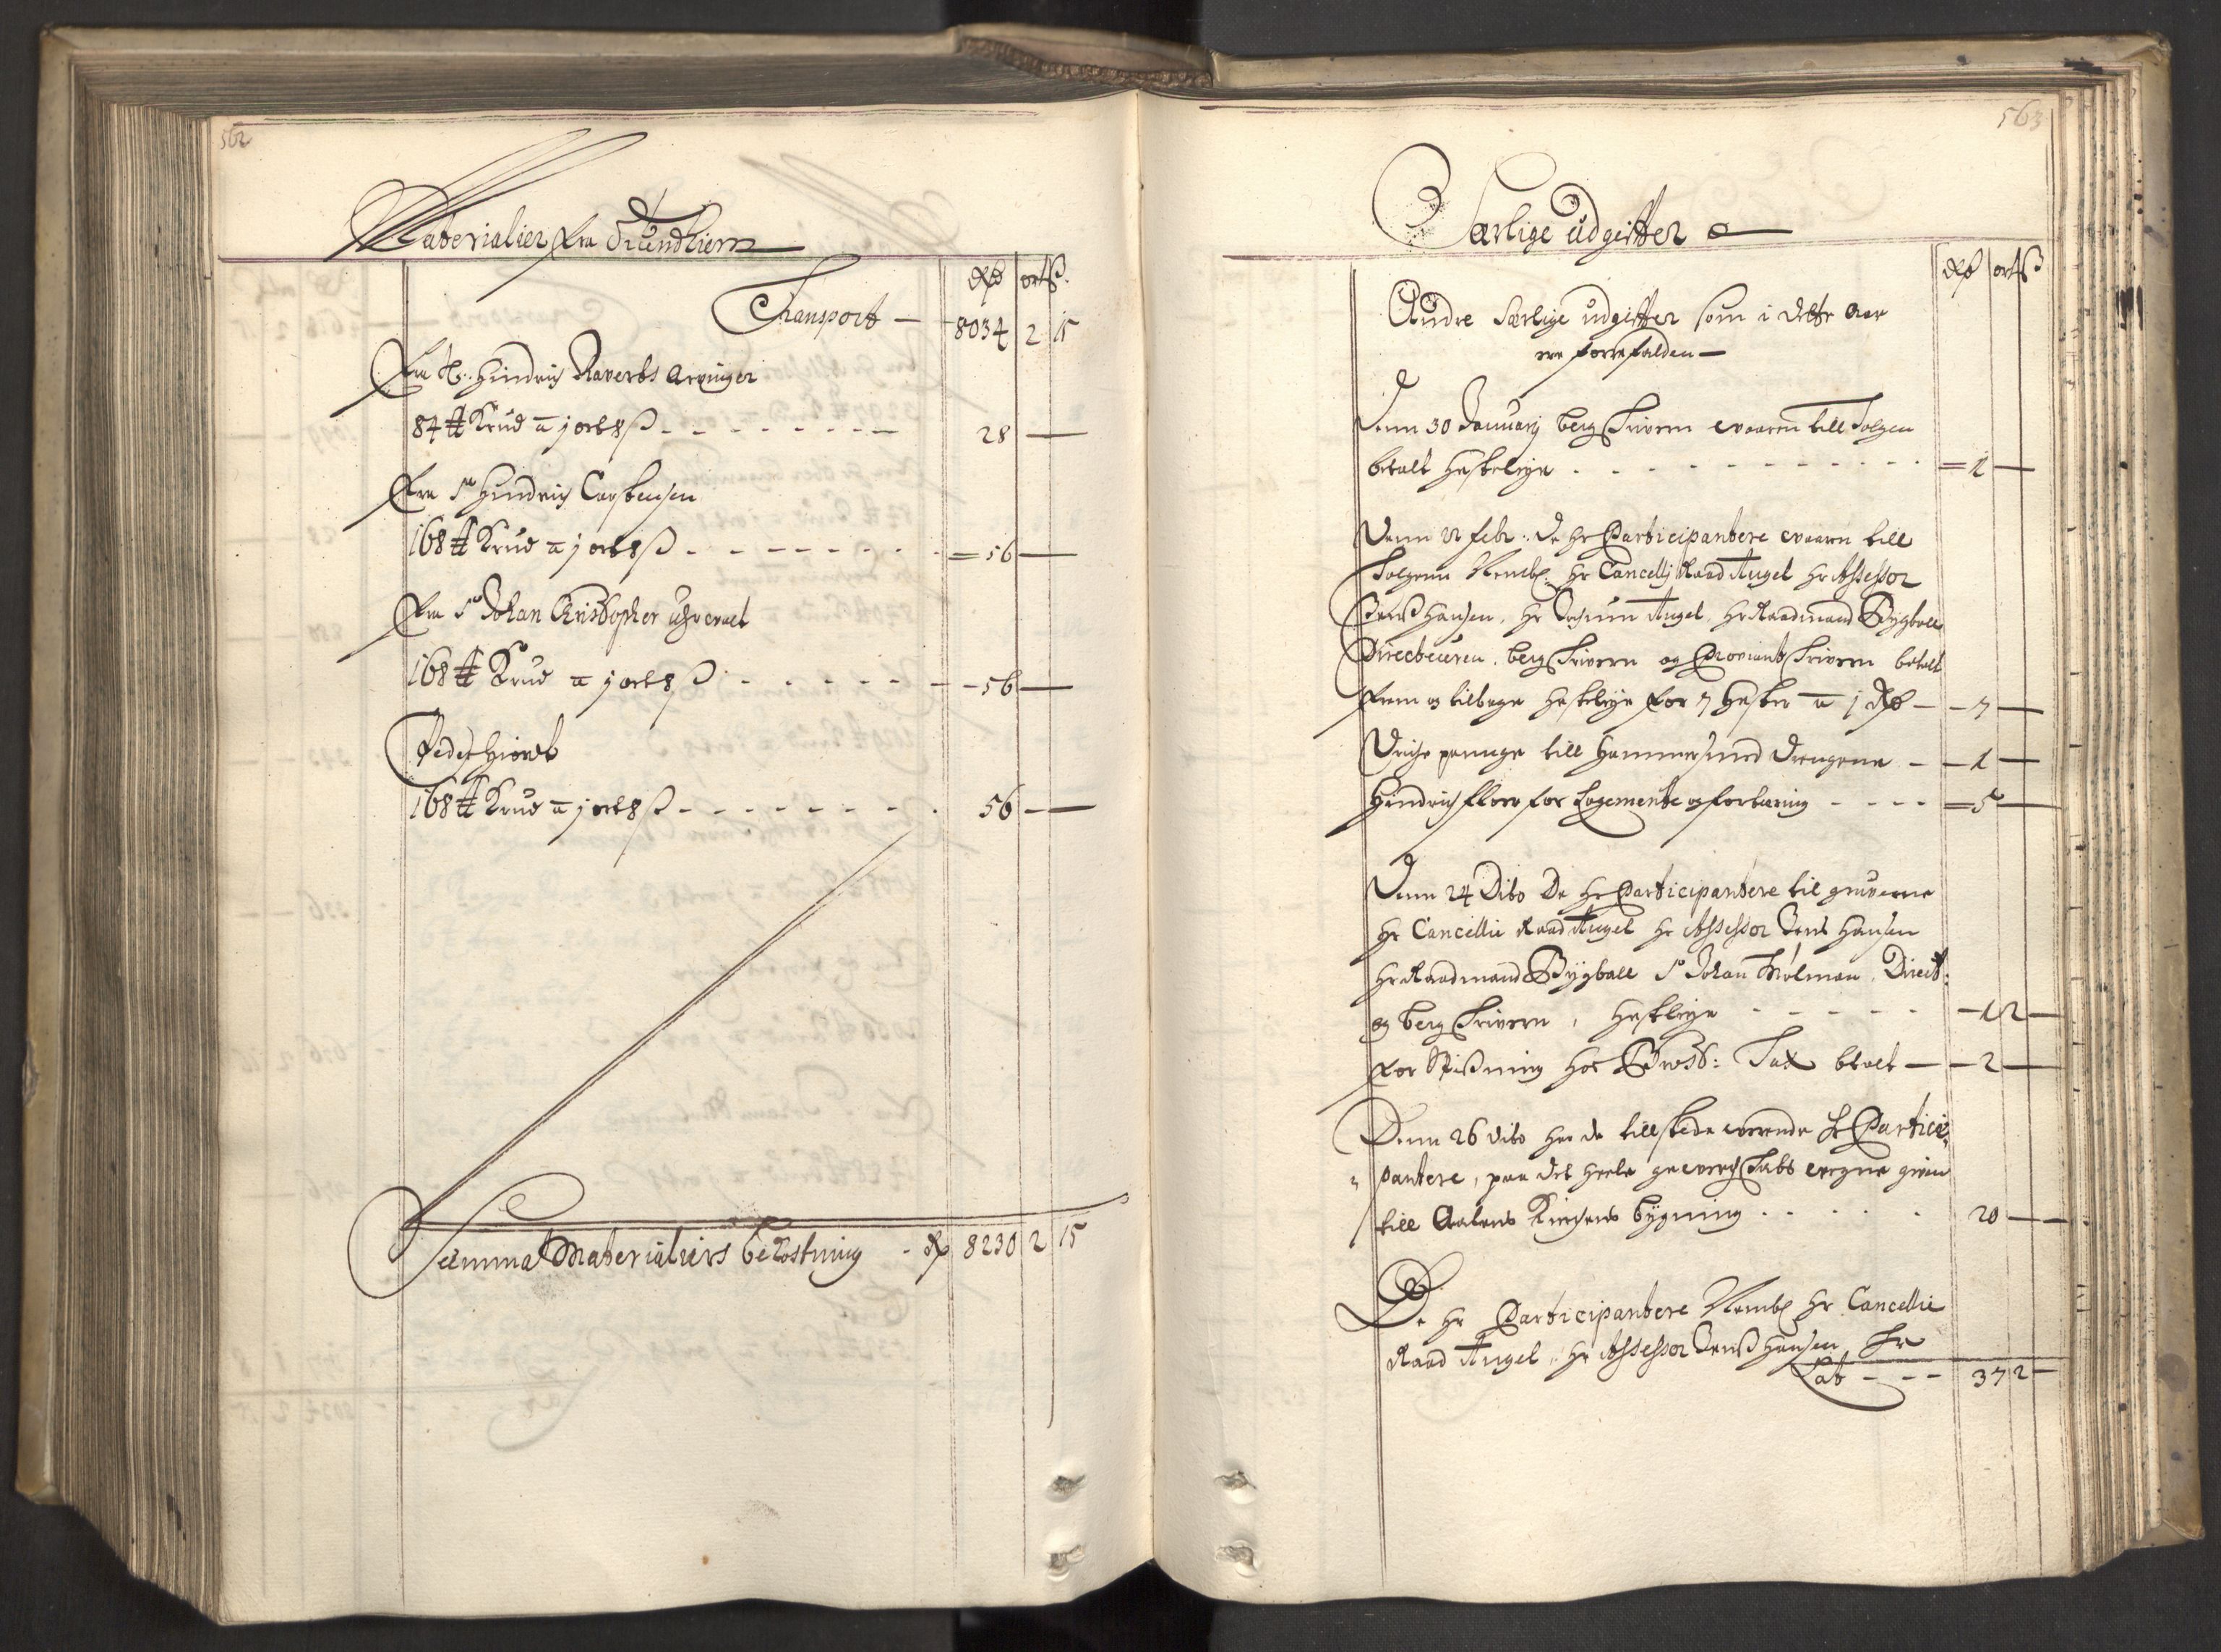 562
Materialier fra Trundhiem
Rdr ort ß
Transport — 8034 2 15
Fra Sl: Hindrich Raverts Arvinger
84 ℔ Krud a j ort 8 ß - - - - - - - 28 —
Fra Sr Hindrich Carstensen
168 ℔ Krud a j ort 8 ß - - - - - - - 56 —
Fra Sr Johan Christopher
168 ℔ Krud a j ort 8 ß - - - - - - 56 —
Peder Hiordt
168 ℔ Krud a j ort 8 ß - - - - - - - 56 —
Summa Materialiers bekostning - Rdr 8230 2 15
563
Særlige udgifter
Rdr ort ß
Andre Særlige udgifter som i dette Aar
ere forrefalden —
Denn 30 January bergskrivern waaren till Solgen
betalt hesteleye - - - - - - - - - - 1 —
Denn 22 febr: de Hr Participantere waarn till
Solgenn Nembl: Hr Cancellj Raad Angel Hr Assessor
Jenß Hansen, Hr Jochum Angel, Hr Raadmand Bygball
Directeuren, bergskrivern og Proviantskrivern betalt
frem og tilbage hesteleye for 7 hester a j Rdr — 7 —
Driche penge till hammersmed drengene - 1 —
Hindrich Floer for Logemente og fortæring - - - - 5 —
Denn 24 Dito De Hr Participantere til gruverne
Hr Cancellie Raad Angel Hr Assessor Jens Hansen
Hr Raadmand Bygball Sr Johan Mølman, Direct:
og bergskrivern, hesteleye - - - - - - 1 2 —
for Spißning hos Tax betalt — 2 —
Denn 26 dito har de tillstede werende Hr Partici-
pantere, paa det heele gewerchskabs wegne given
till Aalens Kirches bygning - - - - - 20 —
De Hr Participantere Nembl Hr Cancellie
Raad Angel, Hr Assessor Jenß Hansen, Hr
Lat - - - 37 2 —